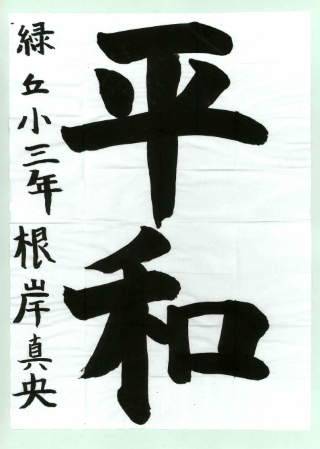 平和
緑丘小三年 根岸真央